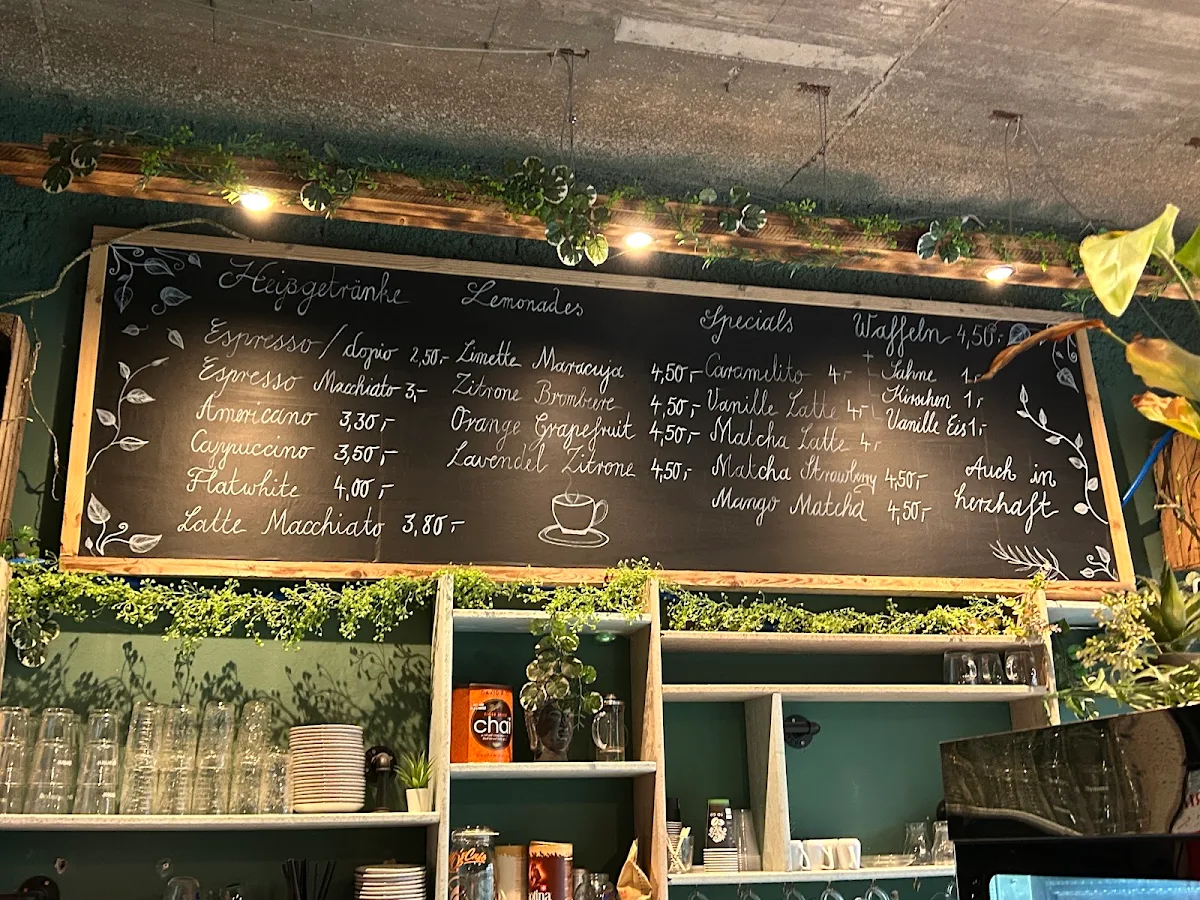 Heißgetränke
Espresso / dopio 2,50,-
Espresso Macchiato 3,-
Americano 3,30,-
Cappuccino 3,50,-
Flatwhite 4,00,-
Latte Macchiato 3,80,-
Lemonades
Limette Maracuja 4,50,-
Zitrone Brombere 4,50,-
Orange Grapefruit 4,50,-
Lavendel Zitrone 4,50,-
Specials
Caramelito 4,-
Vanille Latte 4,-
Matcha Latte 4,-
Matcha Strawberry 4,50,-
Mango Matcha 4,50,-
Waffeln 4,50,-
+ Sahne 1,-
Kirschen 1,-
Vanille Eis 1,-
Auch in
herzhaft
chai